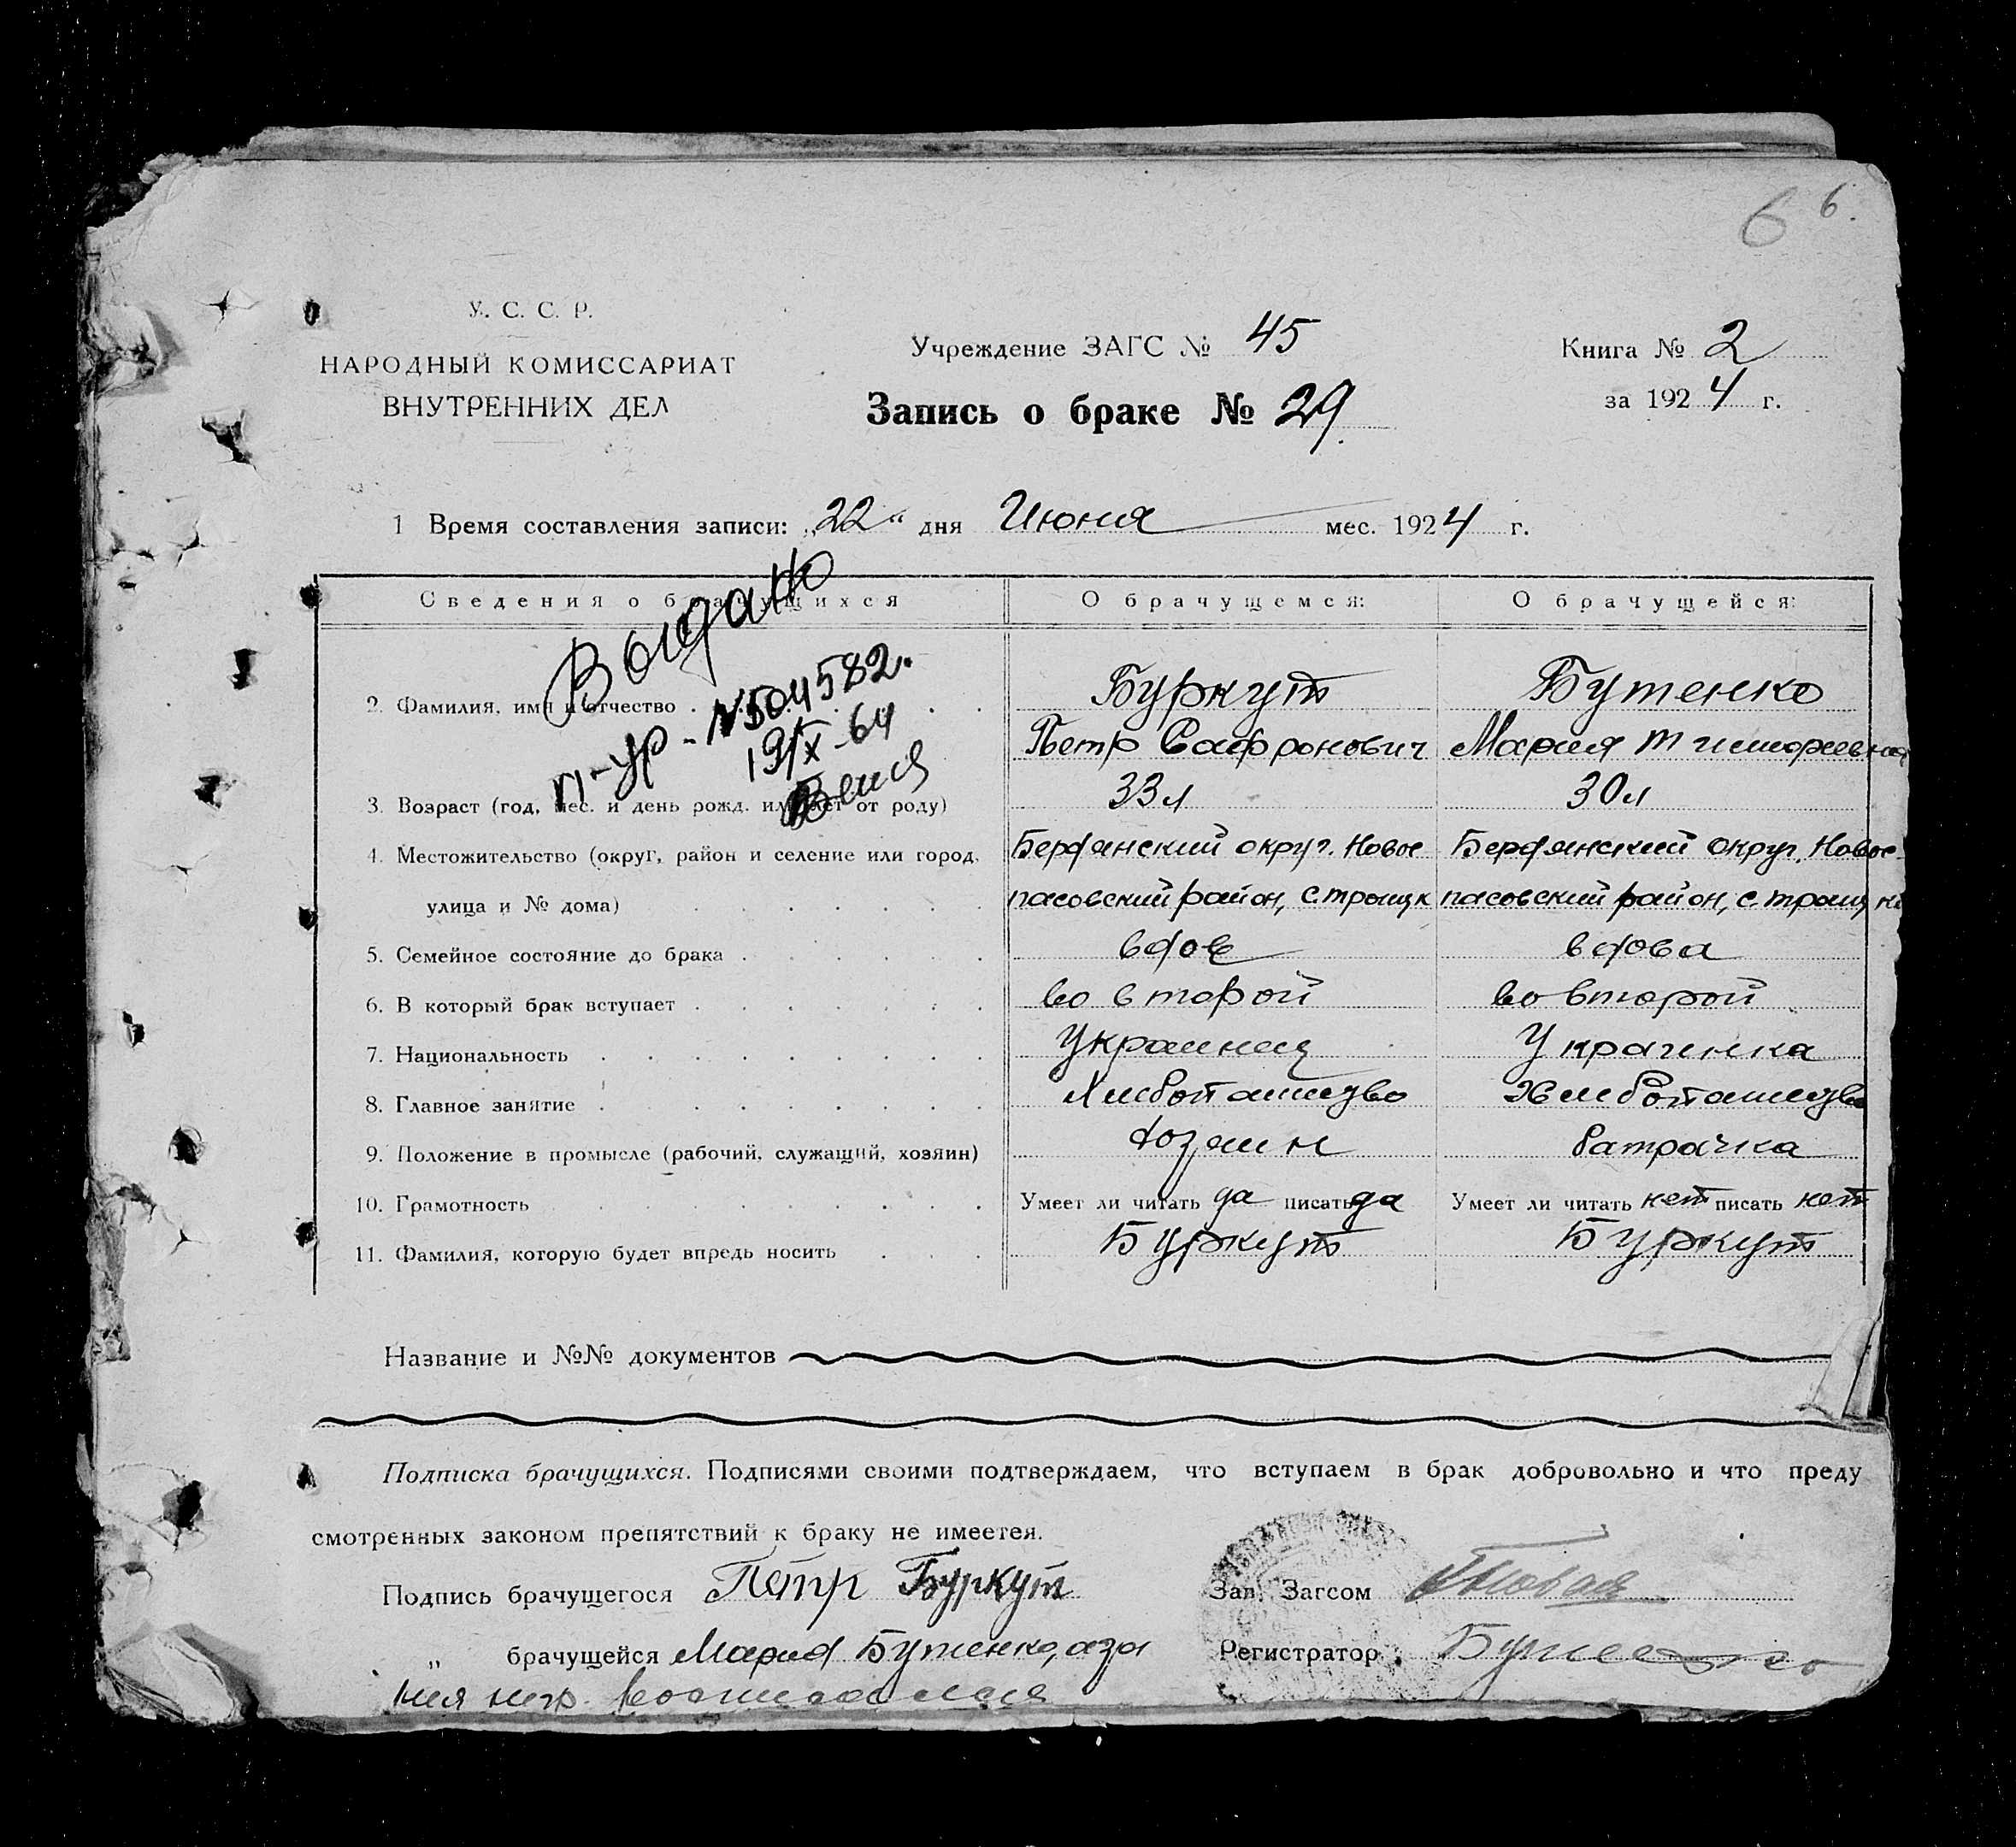 6 6.
У. С. С. Р.
НАРОДНЫЙ КОМИССАРИАТ
ВНУТРЕННИХ ДЕЛ
Учреждение ЗАГС № 45
Запись о браке № 29.
Книга № 2
за 1924 г.
1 Время составления записи: „22“ дня Июня мес. 1924 г.
Сведения о брачущихся О брачущемся: О брачущейся:
Выдано
п-ур - №504582.
19/X-64
2. Фамилия, имя и отчество Буркут Бутенко
Петр Сафронович Мария Тимофеевна
3. Возраст (год, мес. и день рожд. или лет от роду) 33 л 30 л
4. Местожительство (округ, район и селение или город, Бердянский округ. Новос Бердянский округ, Новос
улица и № дома) пасовский район, с. троицк пасовский район, с. троицк
5. Семейное состояние до брака вдов вдова
6. В который брак вступает во второй во второй
7. Национальность Украинец Украинка
8. Главное занятие
9. Положение в промысле (рабочий, служащий, хозяин) хозяин батрачка
10. Грамотность Умеет ли читать да писать да Умеет ли читать нет писать нет
11. Фамилия, которую будет впредь носить Буркут Буркут
Название и №№ документов
Подписка брачущихся. Подписями своими подтверждаем, что вступаем в брак добровольно и что преду
смотренных законом препятствий к браку не имеется.
Подпись брачущегося Петр Буркут
Зав. Загсом
„ брачущейся Мария Бутенко, аза
Регистратор
ния нигр.